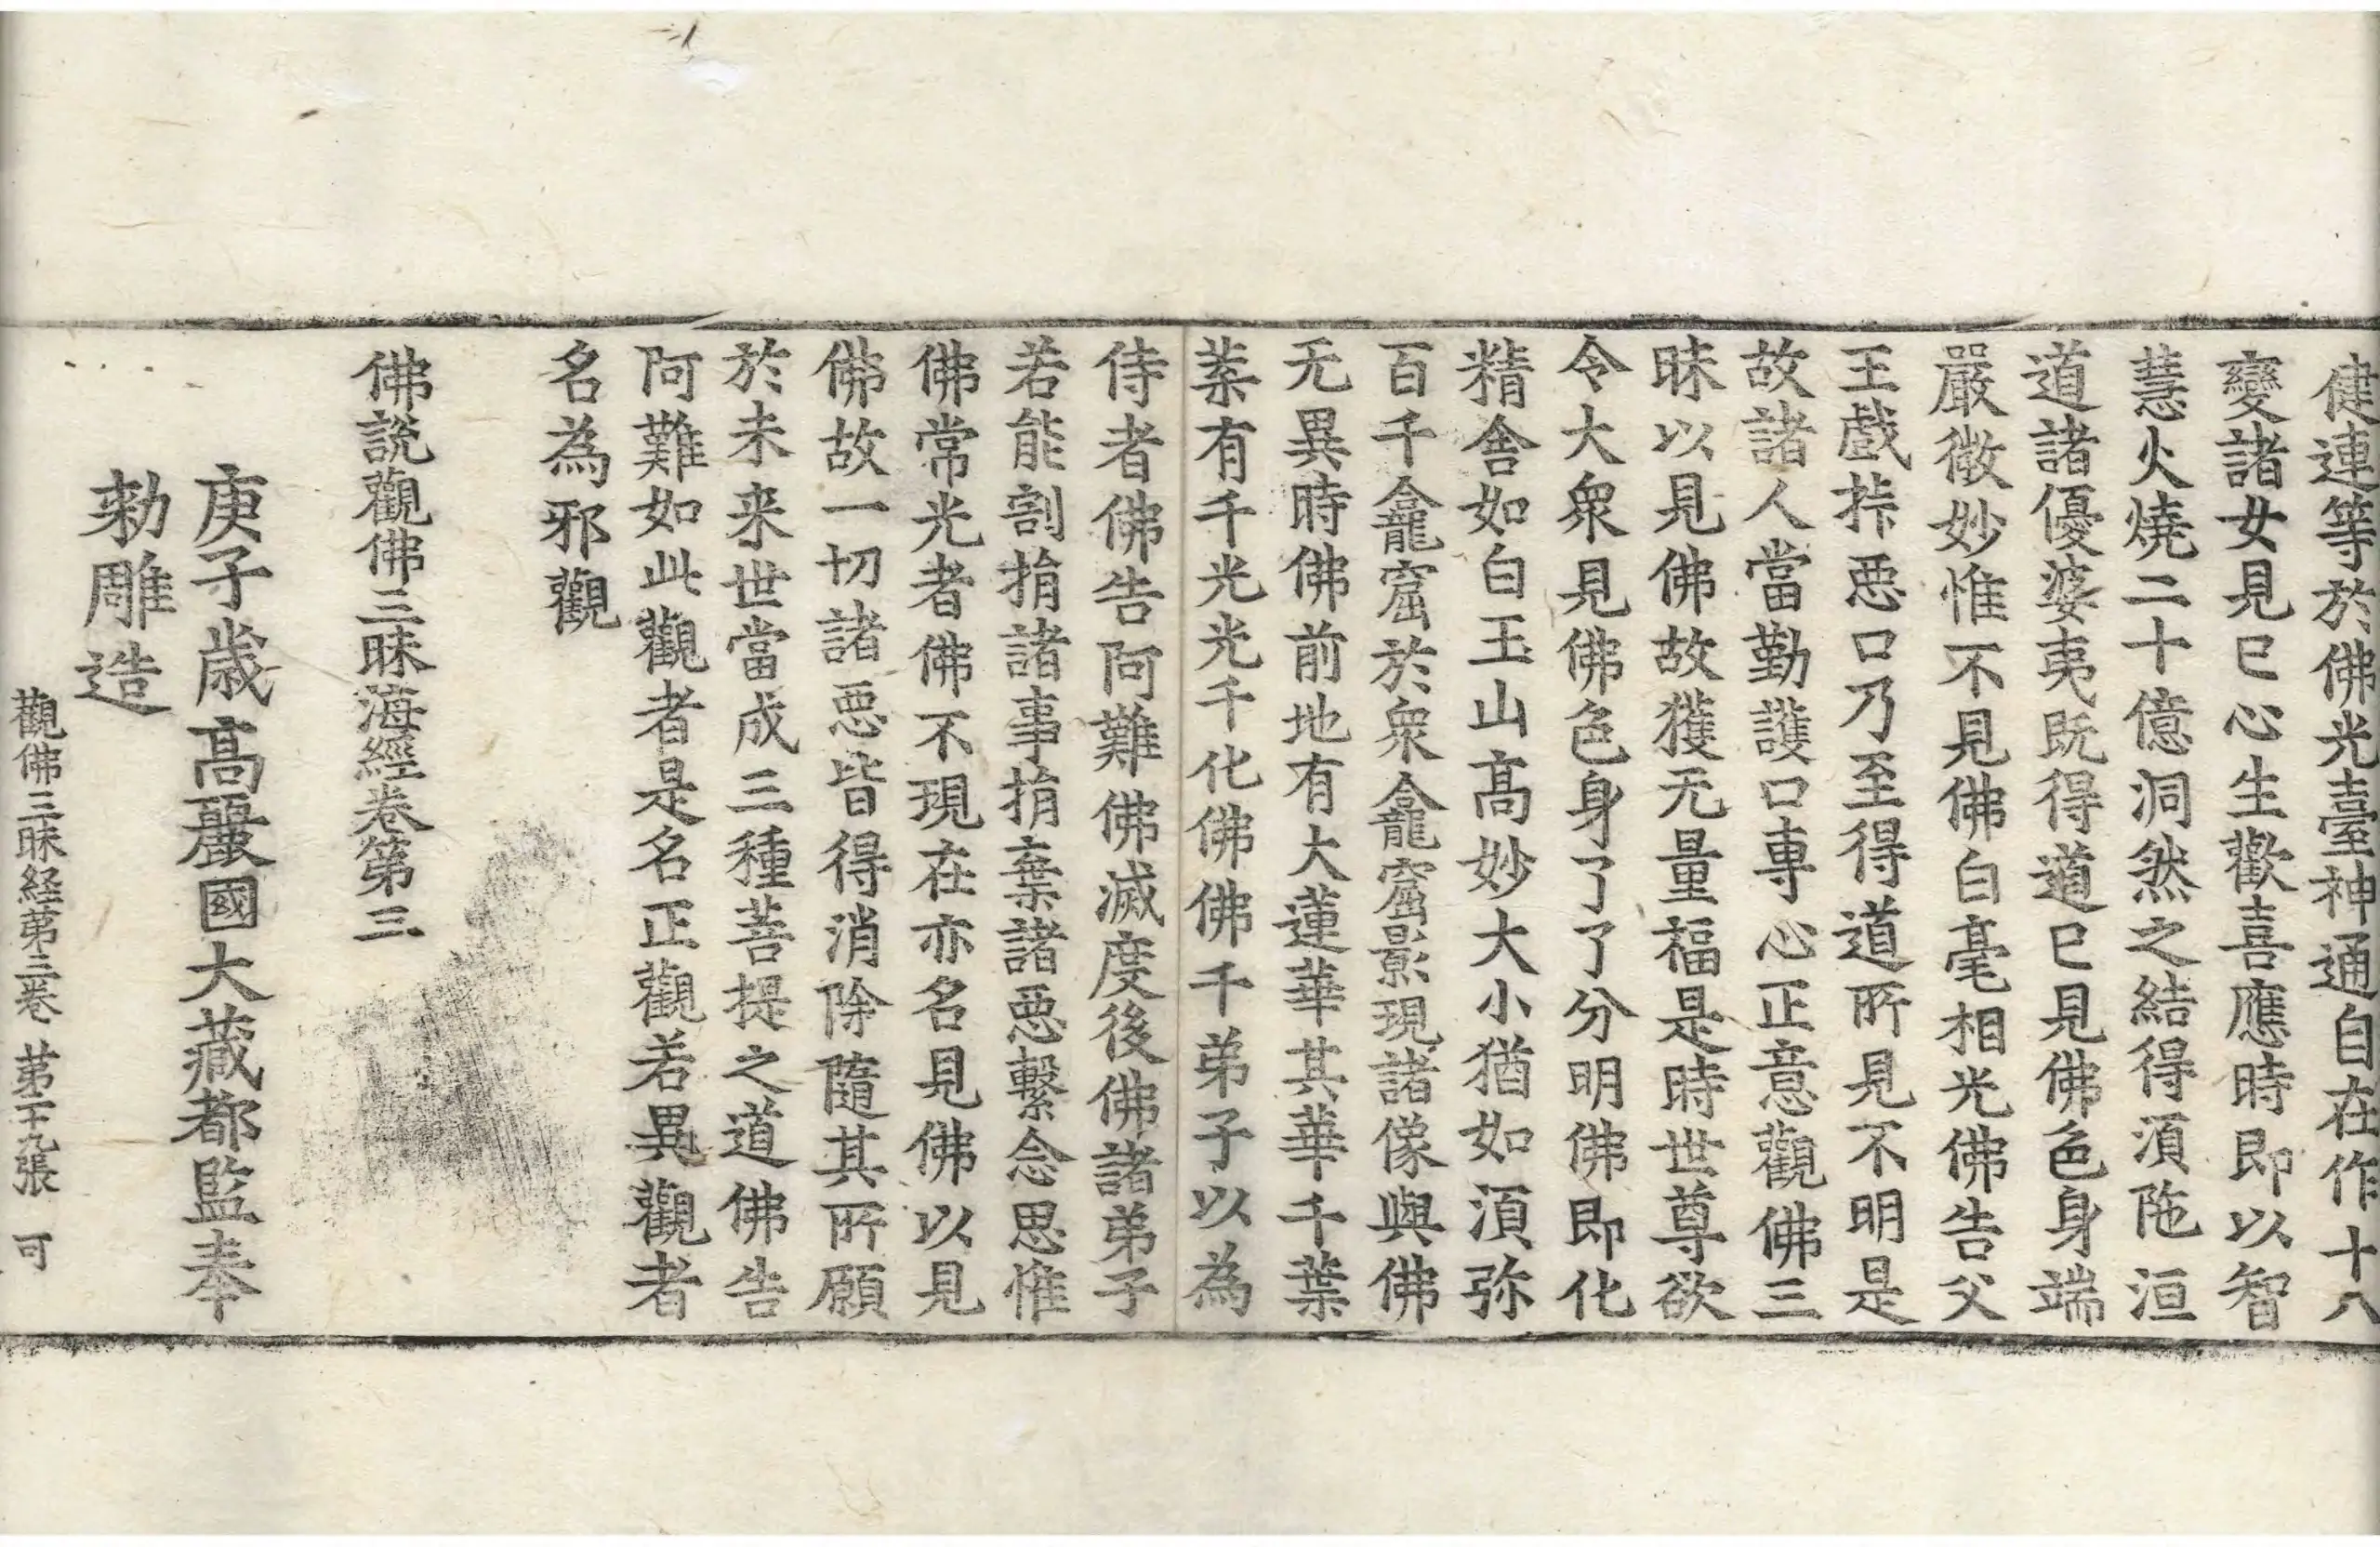 揵連等於佛光臺神通自在作十八
變諸女見已心生歡喜應時即以智
慧火燒二十億洞然之結得湏陁洹
道諸優婆夷既得道已見佛色身端
嚴微妙惟不見佛白毫相光佛告父
王戲拃惡口乃至得道所見不明是
故諸人當勤護口專心正意觀佛三
昧以見佛故獲无量福是時世尊欲
令大衆見佛色身了了分明佛即化
精舍如白玉山髙妙大小猶如湏弥
百千龕窟於衆龕窟影現諸像與佛
无異時佛前地有大蓮華其華千葉
葉有千光光千化佛佛千弟子以為
侍者佛告阿難佛滅度後佛諸弟子
若能割捐諸事捐棄諸惡繫念思惟
佛常光者佛不現在亦名見佛以見
佛故一切諸惡皆得消除隨其所願
於未来世當成三種菩提之道佛告
阿難如此觀者是名正觀若異觀者
名為邪觀
佛說觀佛三昧海經卷第三
庚子歲髙麗國大藏都監奉
勑雕造
觀佛三昧経第三卷 第二十九張 可